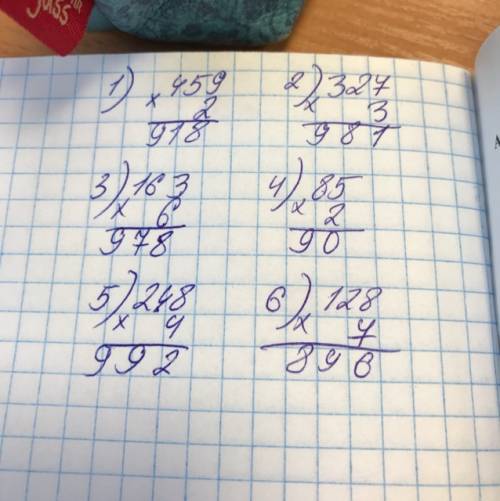 1) 459 2) 327
× 2 × 3
918 981
3) 163 4) 85
× 6 × 2
978 90
5) 248 6) 128
× 4 × 7
992 896